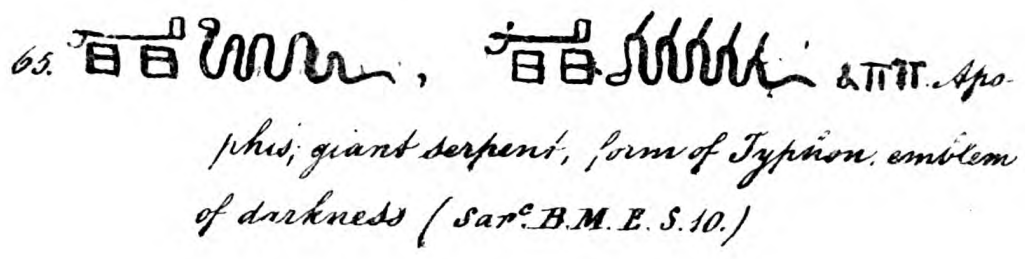 65. 𓂝𓊪𓊪𓆙, 𓂝𓊪𓊪 ⲁⲡⲡ. Apo-
phis; giant serpent, form of Typhon. emblem
of darkness (Sarᶜ. B.M. E. S. 10.)